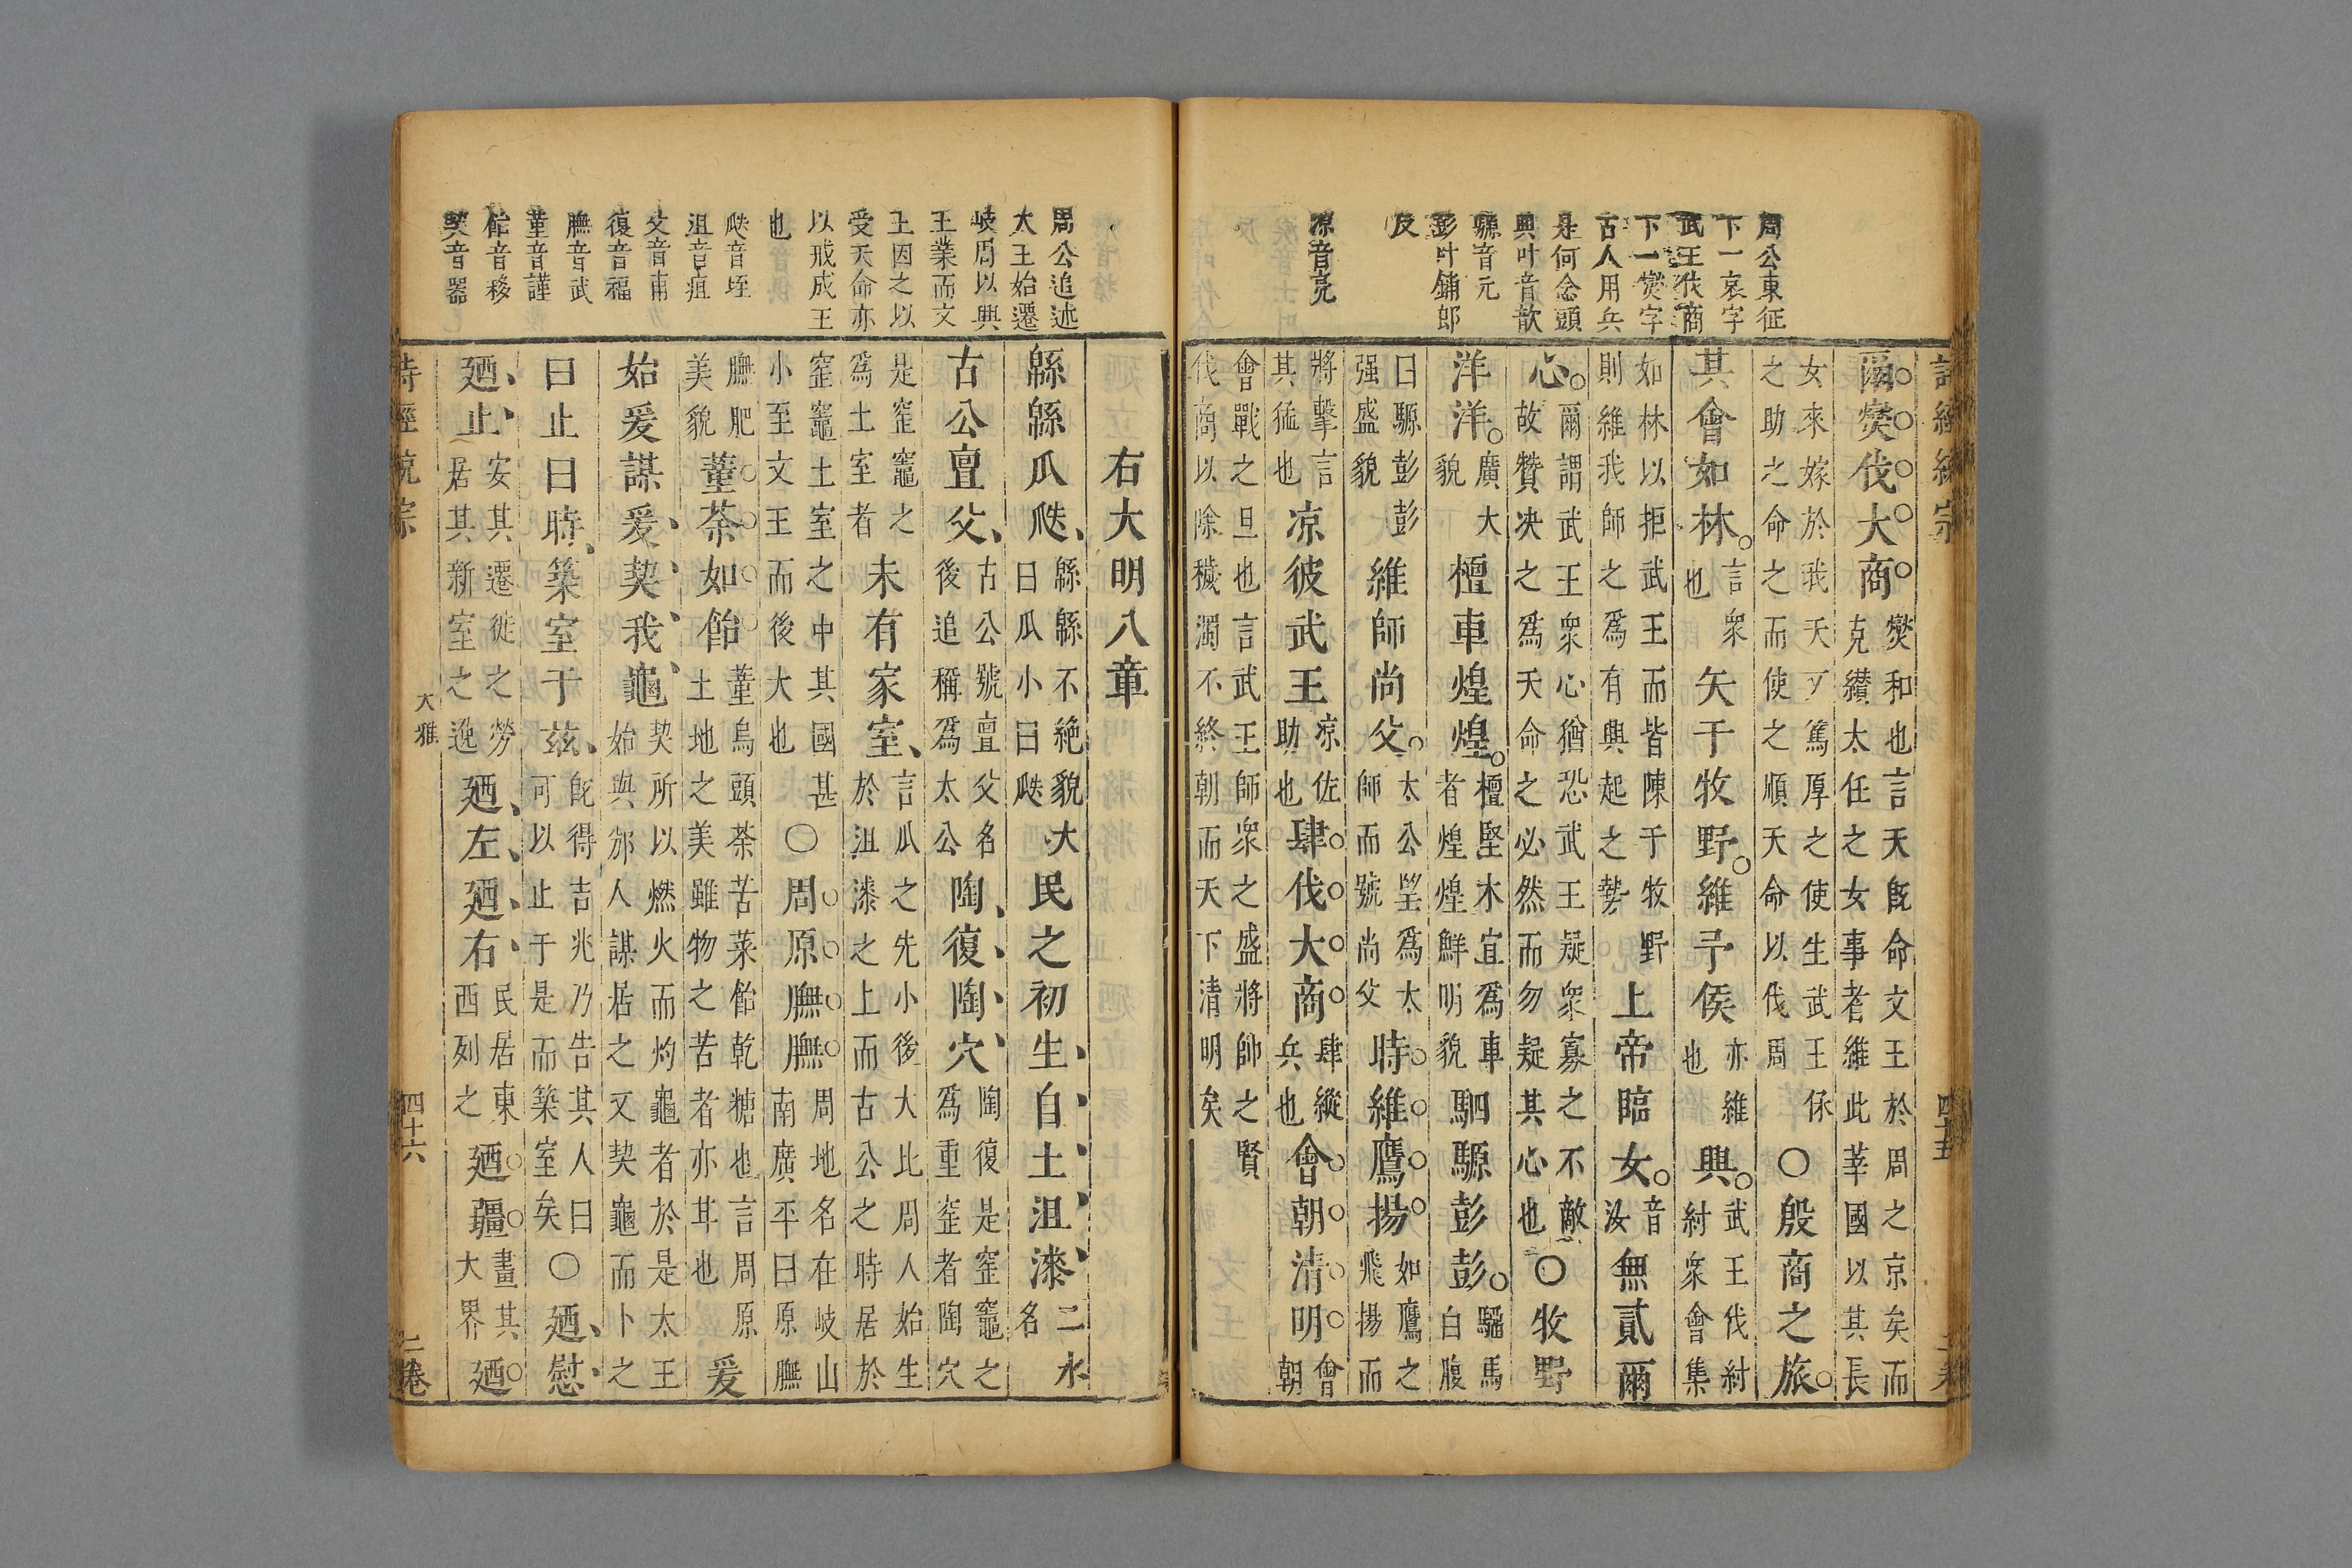 周公東征
下一哀字
武王伐商
下一燮字
古人用兵
是何念頭
興叶音歆
騵音元
彭叶鋪郎
反
涼音亮
詩經統宗
爾燮伐大商燮和也言天旣命文王於周之京矣而
克纘太任之女事者維此莘國以其長
女來嫁於我天又篤厚之使生武王保
之助之命之而使之順天命以伐周
○殷商之旅
其會如林言衆也矢于牧野維予侯亦維也興武王伐紂紂衆會集
如林以拒武王而皆陳于牧野
則維我師之爲有興起之勢
上帝臨女音汝無貳爾
心爾謂武王衆心猶恐武王疑衆寡之不敵
故贊决之爲天命之必然而勿疑其心也
○牧野
洋洋廣大貌檀車煌煌檀堅木宜爲車者煌煌鮮明貌駟騵彭彭騮馬白腹
曰騵彭彭强盛貌維師尚父太公望爲太師而號尚父時維鷹揚如鷹之飛揚而
將擊言其猛也涼彼武王涼佐助也肆伐大商肆縱兵也會朝清明會朝
會戰之旦也言武王師衆之盛將帥之賢
伐商以除穢濁不終朝而天下清明矣
四十五
周公追述
大王始遷
岐周以興
王業而文
王因之以
受天命亦
以戒成王
也
瓞音垤
沮音疽
父音甫
復音福
膴音武
菫音謹
飴音移
契音器
右大明八章
緜緜瓜瓞緜緜不絶貌大曰瓜小曰瓞民之初生自土沮漆二水名
古公亶父古公號亶父名後追稱爲太公陶復陶穴陶復是窑竈之爲重窑者陶穴
是窑竈之爲土室者未有家室言瓜之先小後大比周人始生於沮漆之上而古公之時居於
窑竈土室之中其國甚小至文王而後大也○周原膴膴周地名在岐山南廣平曰原膴
膴肥美貌菫荼如飴菫烏頭荼苦菜飴乾糖也言周原土地之美雖物之苦者亦甘也爰
始爰謀爰契我龜契所以燃火而灼龜者於是太王始與邠人謀居之又契龜而卜之
曰止曰時築室于茲旣得吉兆乃告其人曰可以止于是而築室矣○廼慰
廼止安其遷徙之勞居其新室之逸廼左廼右民居東西列之廼疆畫其大界廼
詩經統宗
大雅
四十六
二卷